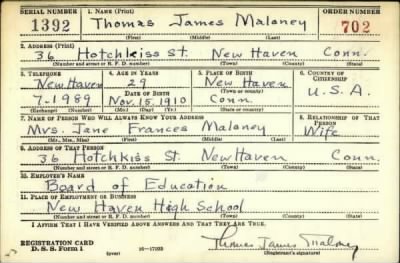 SERIAL NUMBER 1. NAME (Print) ORDER NUMBER
1392 Thomas James Maloney 702
(First) (Middle) (Last)
2. ADDRESS (Print)
36 Hotchkiss St. New Haven Conn.
(Number and street or R. F. D. number) (Town) (County) (State)
3. TELEPHONE 4. AGE IN YEARS 5. PLACE OF BIRTH 6. COUNTRY OF CITIZENSHIP
New Haven 29 New Haven
DATE OF BIRTH (Town or county) U.S.A.
7-1989 Nov. 15, 1910 Conn.
(Exchange) (Number) (Mo.) (Day) (Yr.) (State or country)
7. NAME OF PERSON WHO WILL ALWAYS KNOW YOUR ADDRESS 8. RELATIONSHIP OF THAT PERSON
Mrs. Jane Frances Maloney Wife
(Mr., Mrs., Miss) (First) (Middle) (Last)
9. ADDRESS OF THAT PERSON
36 Hotchkiss St. New Haven Conn.
(Number and street or R. F. D. number) (Town) (County) (State)
10. EMPLOYER'S NAME
Board of Education
11. PLACE OF EMPLOYMENT OR BUSINESS
New Haven High School
(Number and street or R. F. D. number) (Town) (County) (State)
I AFFIRM THAT I HAVE VERIFIED ABOVE ANSWERS AND THAT THEY ARE TRUE.
REGISTRATION CARD
D. S. S. Form 1 (over) 16-17105 Thomas James Maloney
(Registrant's signature)